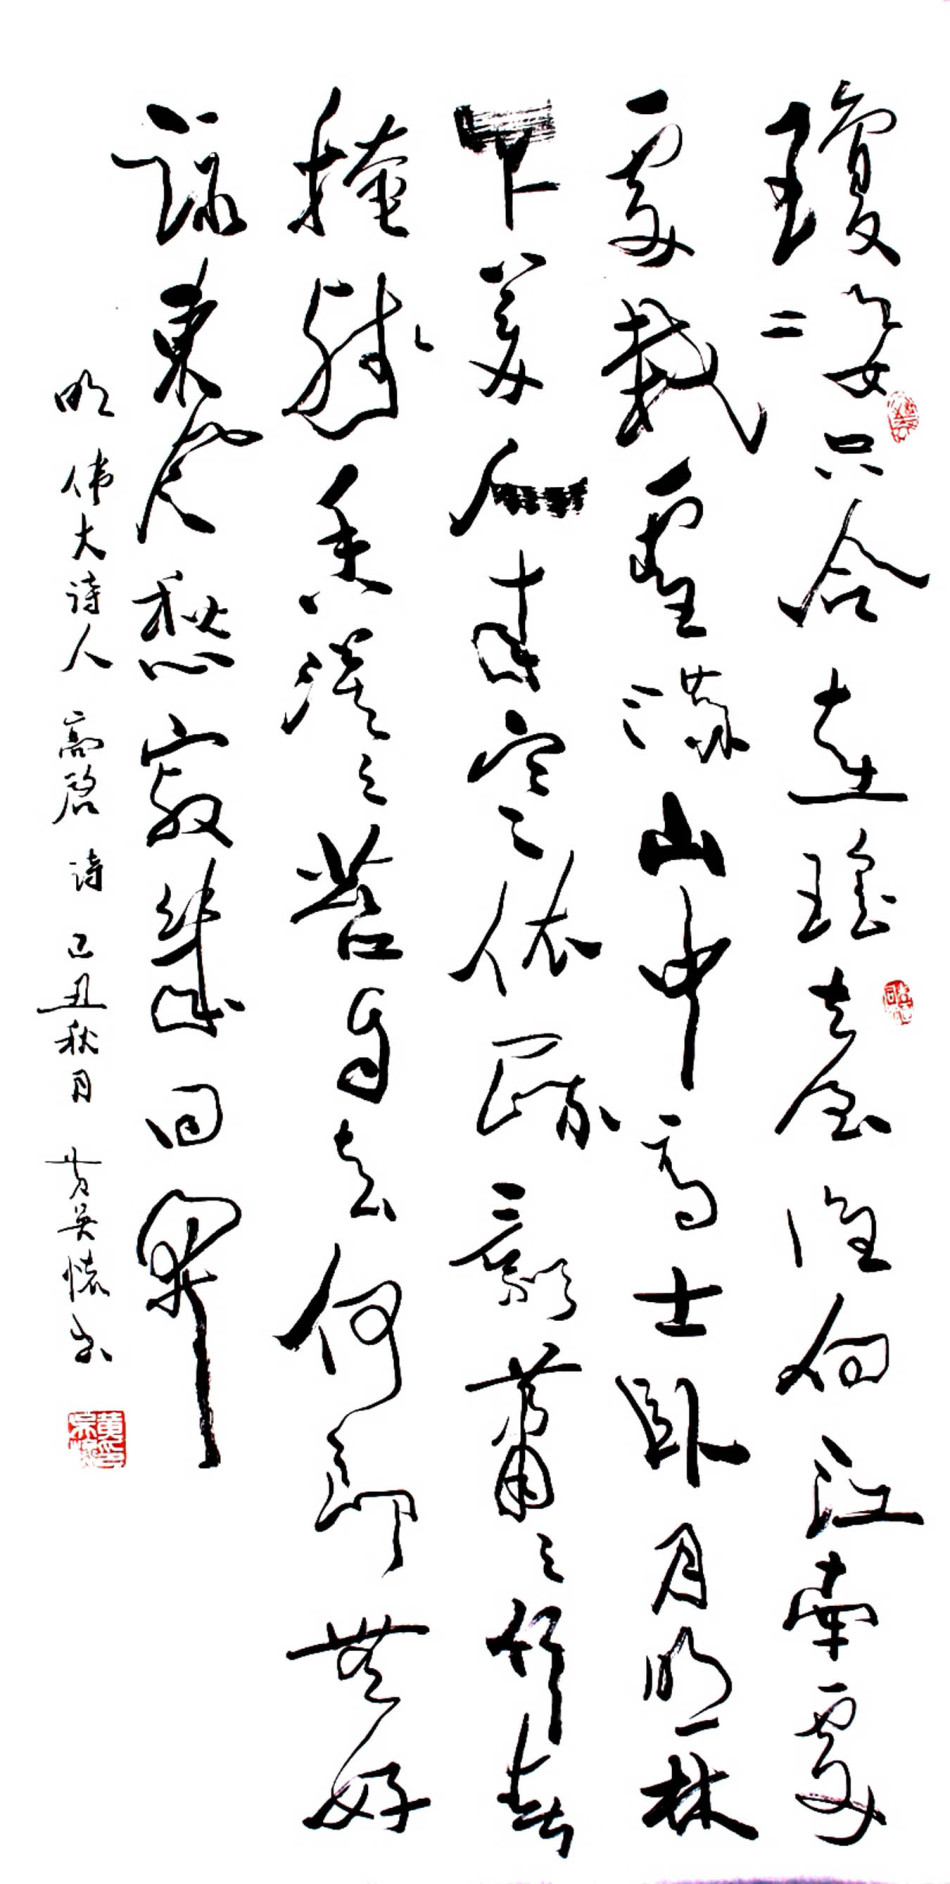 瓊姿只合在瑤臺誰向江南處
處栽雪滿山中高士臥月明林
下美人來寒依疏影蕭々竹春
掩殘香漠々苔自去何郎無好
詠東風愁寂幾回開
明 伟大诗人 高启 诗 己丑秋月 黄吴怀书